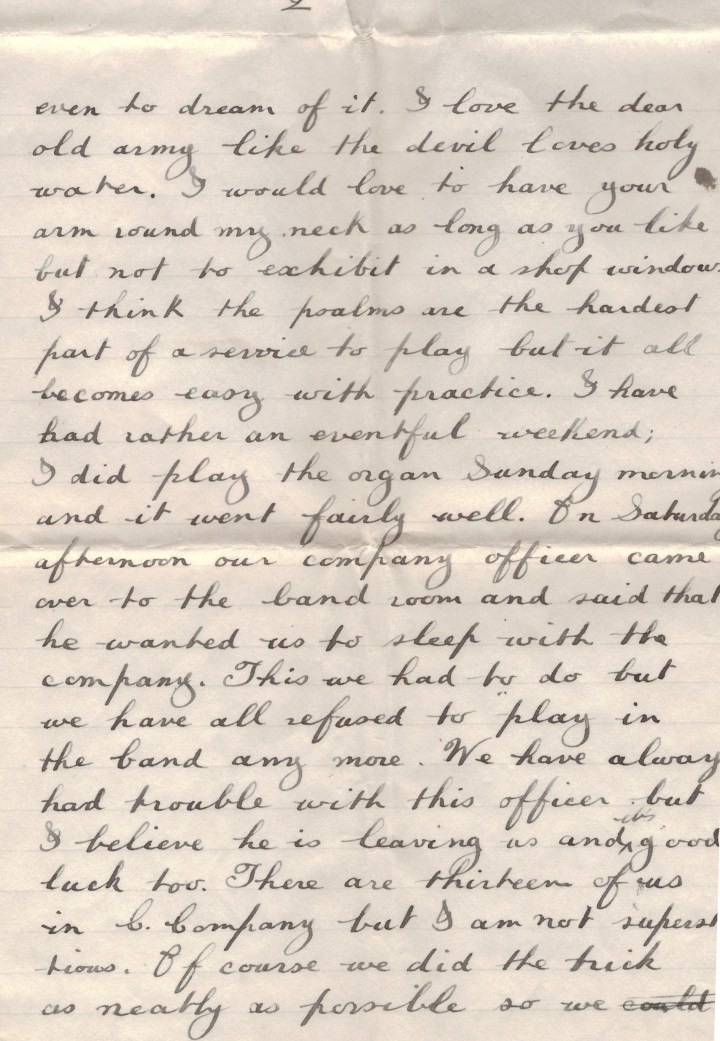 2
even to dream of it. I love the dear
old army like the devil loves holy
water. I would love to have your
arm round my neck as long as you like
but not to exhibit in a shop window.
I think the psalms are the hardest
part of a service to play but it all
becomes easy with practice. I have
had rather an eventful weekend;
I did play the organ Sunday mornin
and it went fairly well. On Saturday
afternoon our company officer came
over to the band room and said that
he wanted us to sleep with the
company. This we had to do but
we have all refused to play in
the band any more. We have alway
had trouble with this officer but
I believe he is leaving us and its good
luck too. There are thirteen of us
in C. Company but I am not superst
tious. Of course we did the trick
as neatly as possible so we could